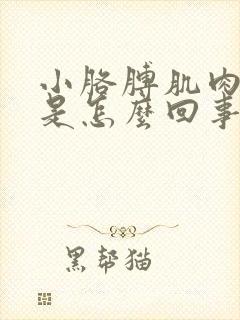 小胳膊肌肉
是怎麽回事
黑帮猫